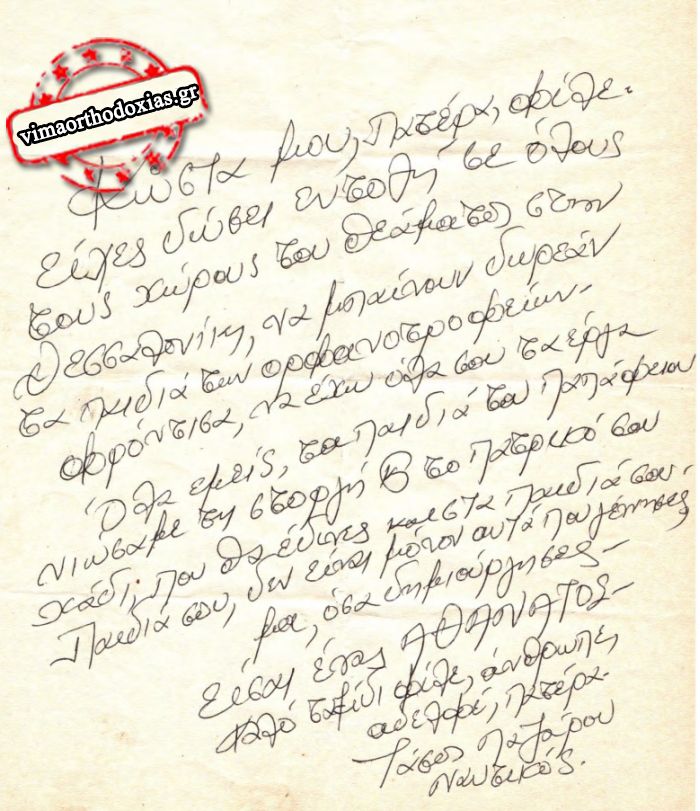 vimaorthodoxias.gr
Κώστα μου, πατέρα, φίλε-
είχες δώσει εντολή σε όλους
τους χώρους του θεάματος στην
Θεσσαλονίκη, να μπαίνουν δωρεάν
τα παιδιά των ορφανοτροφείων-
φρόντισα, να έχω όλα σου τα έργα
Όλα εμείς, τα παιδιά του Παπάφειου
νιώσαμε τη στοργή & το πατρικό σου
χάδι, που θα έδινες και στα παιδιά σου-
Παιδιά σου, δεν είναι μόνον αυτά που γέννησες
μα, όσα δημιούργησες-
είσαι ένας ΑΘΑΝΑΤΟΣ-
Καλό ταξίδι φίλε, άνθρωπε,
αδελφέ, πατέρα-
Τάσος Λαζάρου
ναυτικός.